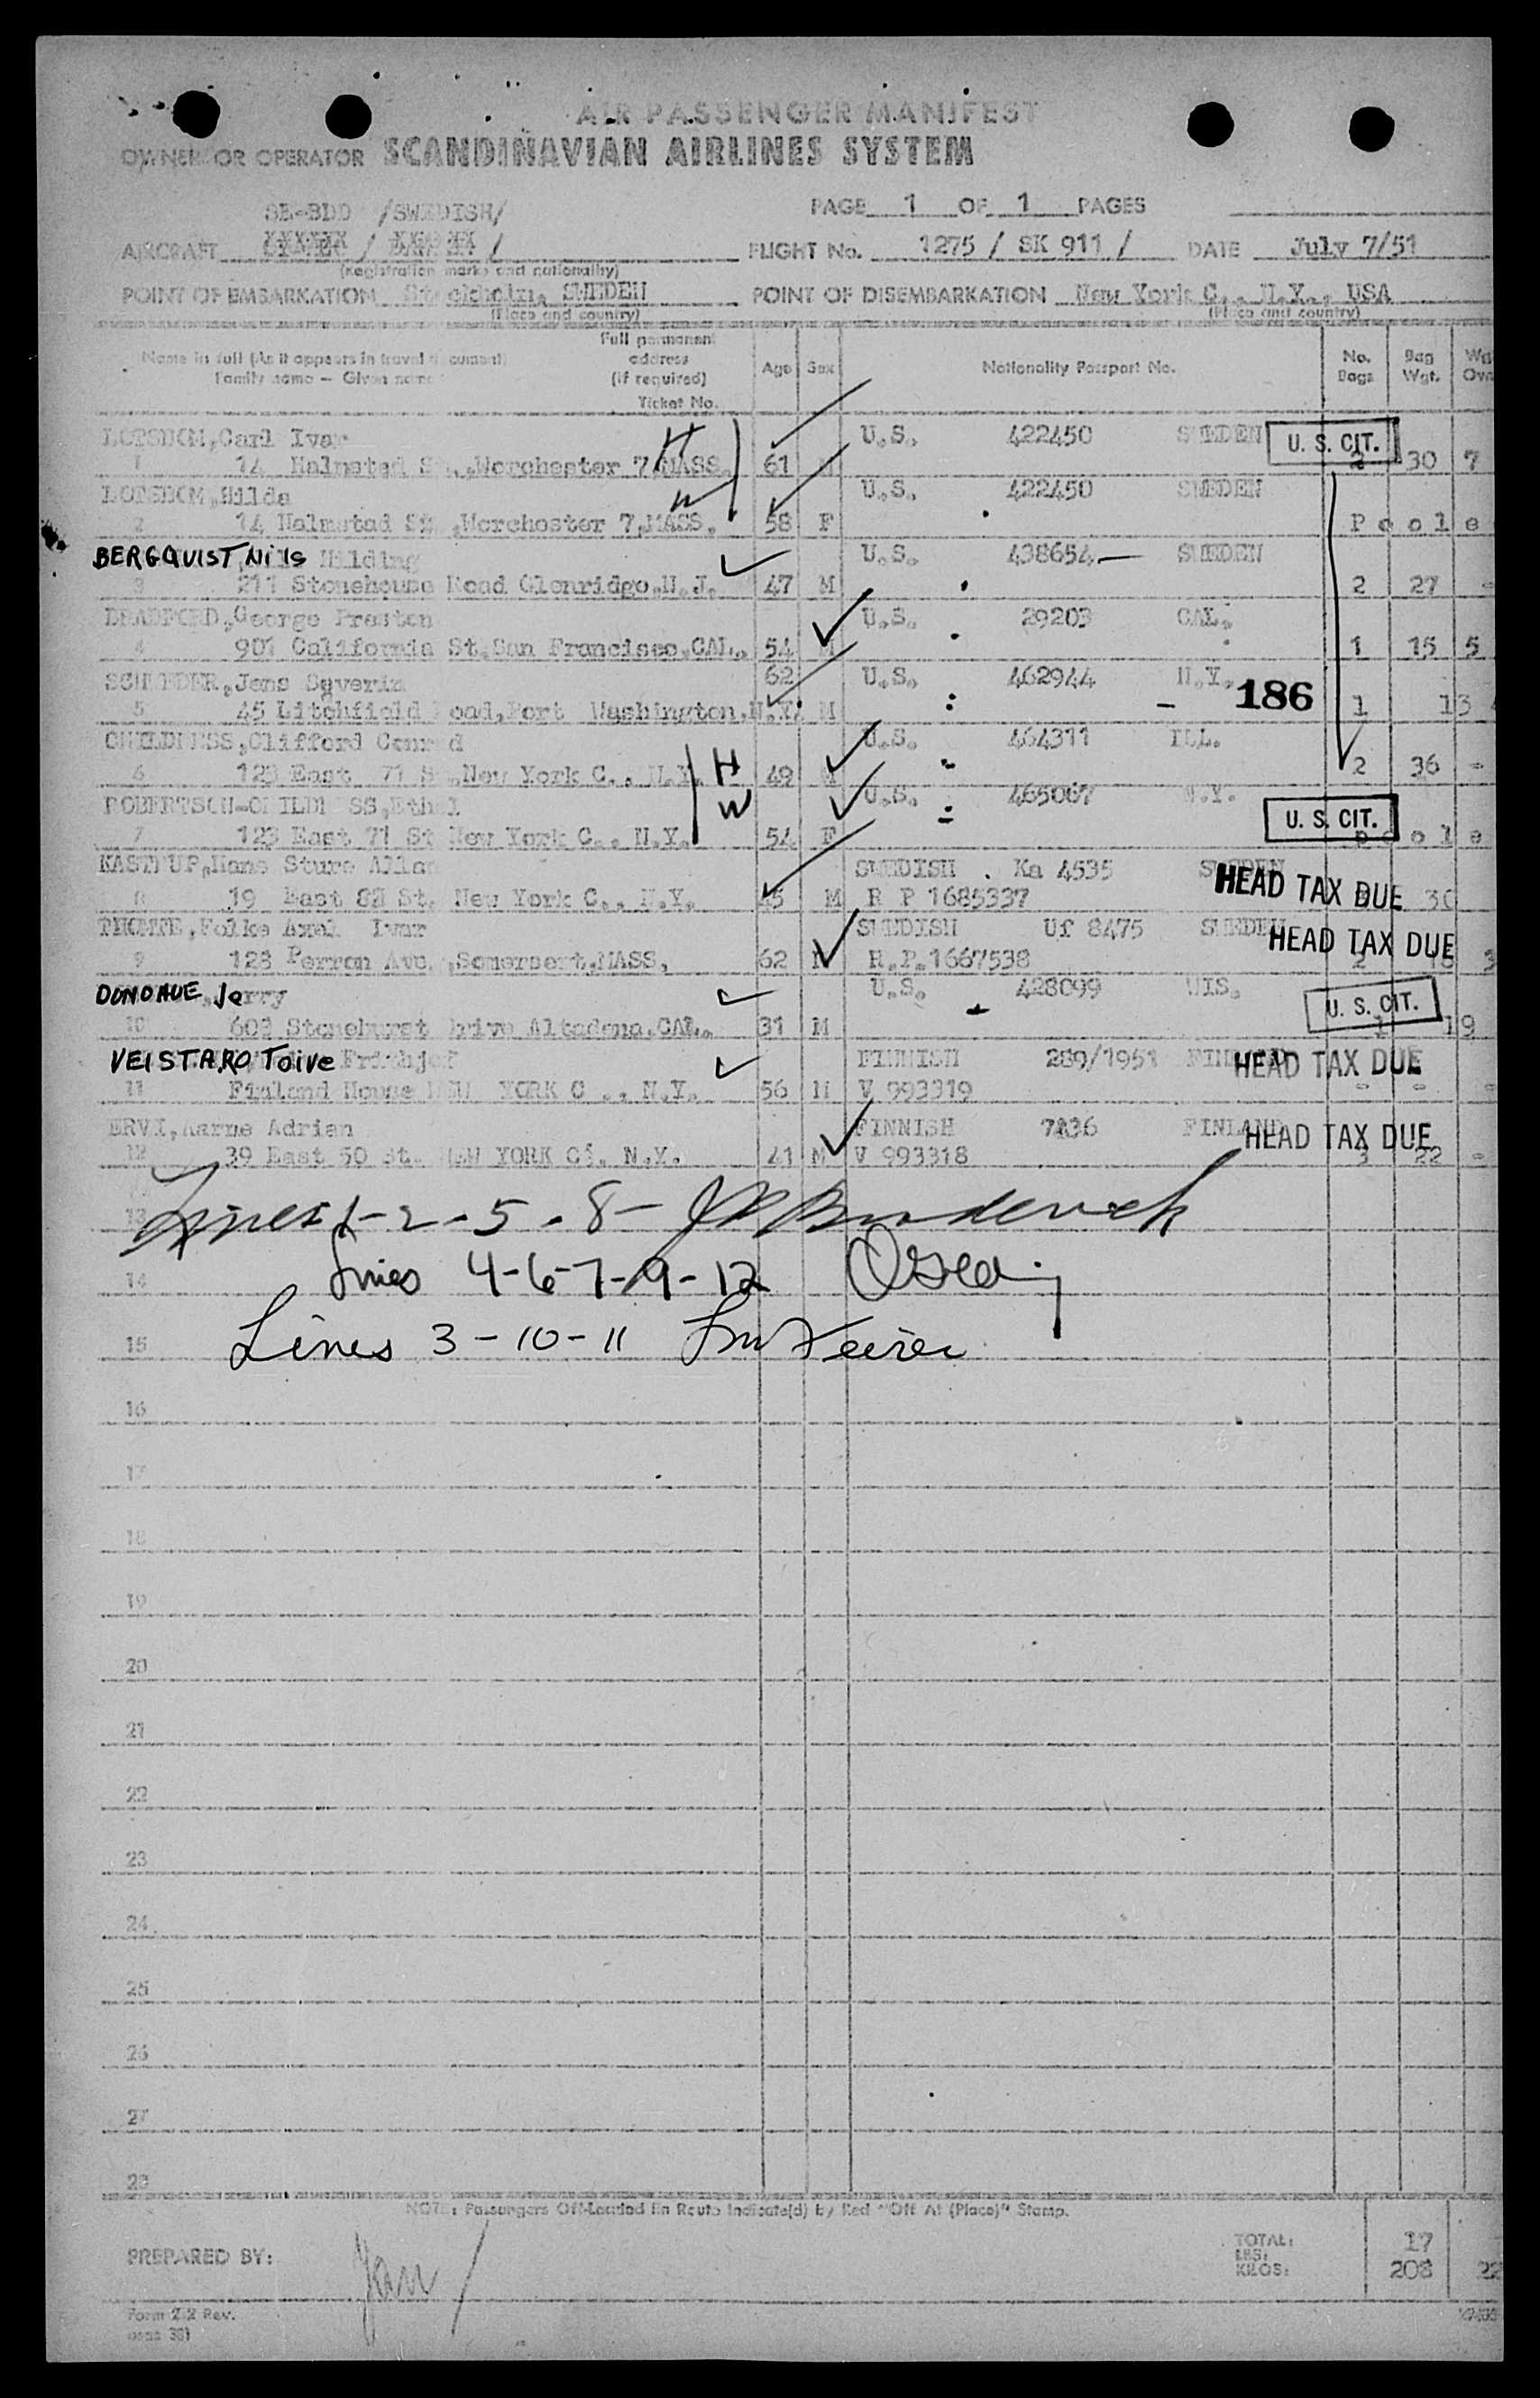 AIR PASSENGER MANIFEST
OWNER OR OPERATOR SCANDINAVIAN AIRLINES SYSTEM
SE-BDD /SWEDISH/ PAGE 1 OF 1 PAGES
AIRCRAFT FLIGHT No. 1275 / SK 911 / DATE July 7/51
(Registration marks and nationality)
POINT OF EMBARKATION Stockholm, SWEDEN POINT OF DISEMBARKATION New York C., N.Y., USA
(Place and country) (Place and country)
Name in full (As it appears in travel document) Full permanent address (if required) Age Sex Nationality Passport No. No. Bags Bag Wgt.
Family name — Given name Ticket No.
Carl Ivar H U.S. 422450 SWEDEN U. S. CIT.
1 14 Halmstad St., Worchester 7, MASS. 61 M 2 30 7
Hilda W U.S. 422450 SWEDEN
2 14 Halmstad St., Worchester 7, MASS. 58 F Poole
BERGQUIST, Nils Hilding U.S. 438654 — SWEDEN
3 211 Stonehouse Road Glenridge, N.J. 47 M 2 27 -
BRADFORD, George Preston U.S. 29203 CAL.
4 901 California St. San Francisco, CAL. 54 M 1 15 5
SCHREDER, Jens Severin 62 U.S. 462944 N.Y. 186
5 45 Litchfield Road, Port Washington, N.Y. M 1 13
CHILDRESS, Clifford Conrad U.S. 464311 ILL.
6 123 East 71 St., New York C., N.Y. H 49 M 2 36 -
ROBERTSON-CHILDRESS, Ethel W U.S. 465067 N.Y. U. S. CIT.
7 123 East 71 St New York C., N.Y. 54 F Poole
KASTRUP, Hans Sture Allan SWEDISH Ka 4535 SWEDEN HEAD TAX DUE
8 19 East 82 St. New York C., N.Y. 45 M R P 1685337 30
Folke Axel Ivar SWEDISH Uf 8475 SWEDEN HEAD TAX DUE
9 128 Perron Ave., Somersert, MASS. 62 M R.P. 1667538 2 18
DONOHUE, Jerry U.S. 428099 WIS. U. S. CIT.
10 602 Stonehurst Drive Altadena, CAL. 31 M 1 19
VEISTARO Toive Frithjof FINNISH 289/1951 FINLAND HEAD TAX DUE
11 Finland House NEW YORK C., N.Y. 56 M V 993319 - - -
ERVI, Aarne Adrian FINNISH 7836 FINLAND HEAD TAX DUE
12 39 East 50 St. NEW YORK C., N.Y. 41 M V 993318 3 22 -
13 Lines 1-2-5-8-
14 Lines 4-6-7-9-12
15 Lines 3-10-11
16
17
18
19
20
21
22
23
24
25
26
27
28
NOTE: Passengers Off-Loaded En Route Indicate(d) by Red "Off At (Place)" Stamp.
PREPARED BY: TOTAL: 17
LBS:
KILOS: 208 22
Form 22 Rev.